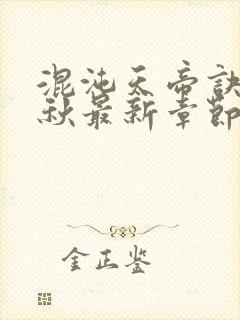 混沌天帝诀
秋最新章节
金正鉴